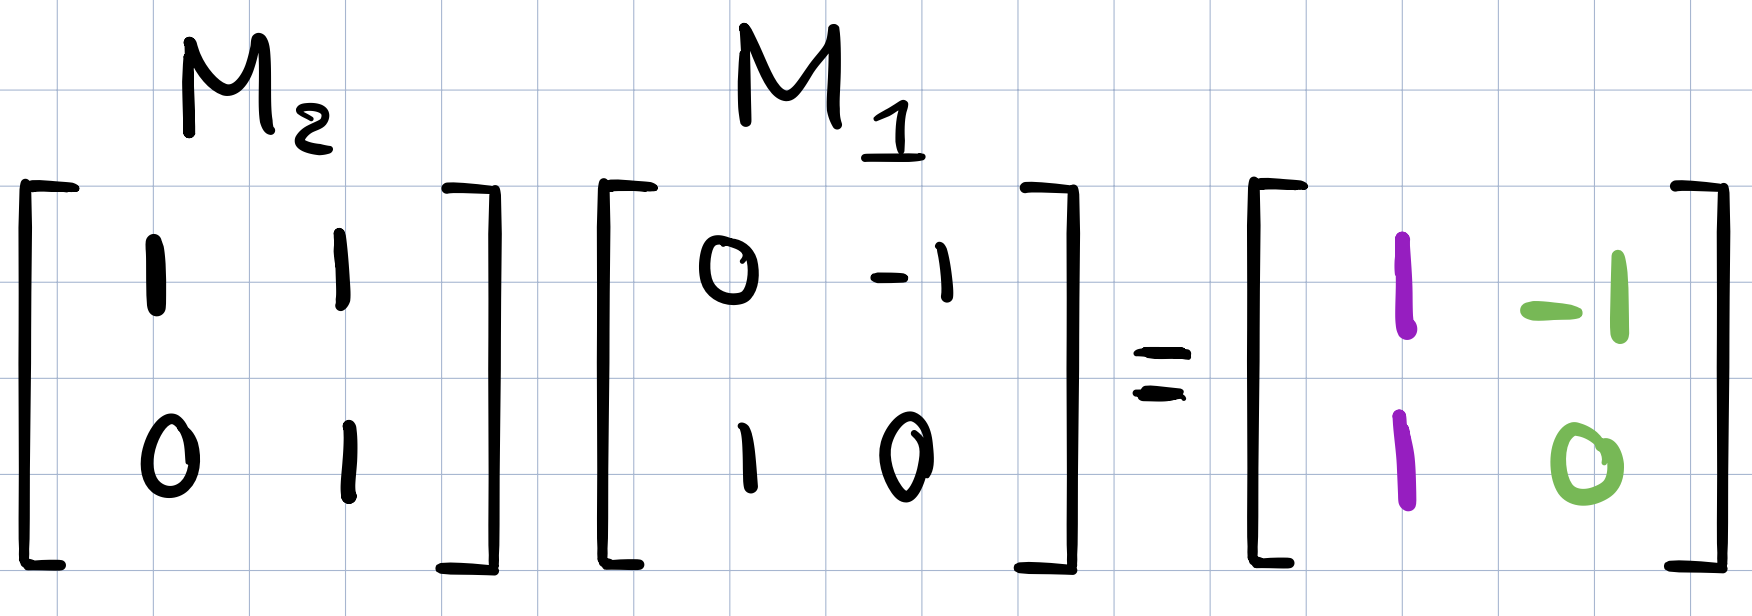 M₂ M₁
[1 1] [0 -1] = [1 -1]
[0 1] [1 0] [1 0]